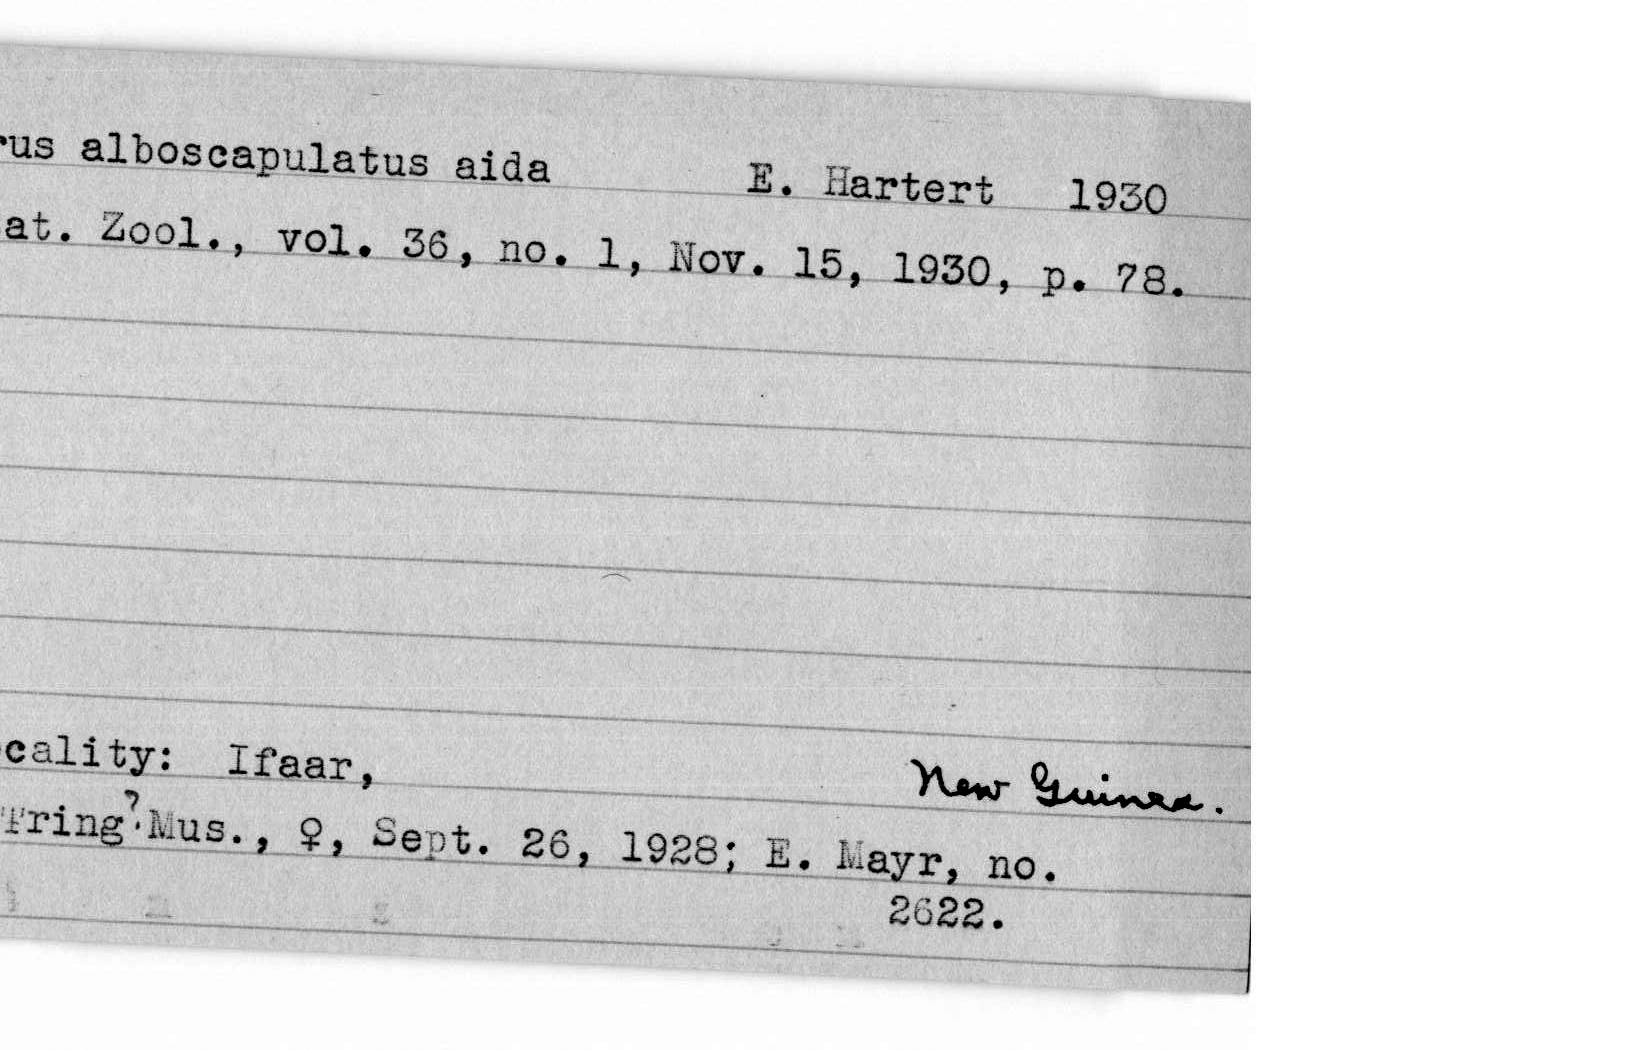 rus alboscapulatus aida E. Hartert 1930
at. Zool., vol. 36, no. 1, Nov. 15, 1930, p. 78.
cality: Ifaar, New Guinea.
?
Tring Mus., ♀, Sept. 26, 1928; E. Mayr, no.
2622.